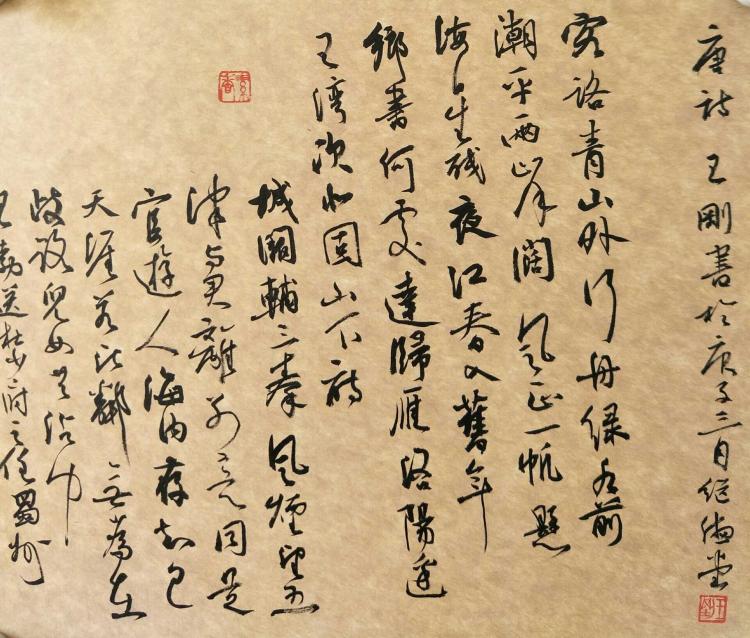 唐詩 王剛書於庚子三月
客路青山外行舟绿水前
潮平兩岸闊風正一帆懸
海日生殘夜江春入舊年
鄉書何處達歸雁洛陽邊
王湾次北固山下詩
城闕輔三秦風煙望五
津与君離别意同是
宦遊人海内存知己
天涯若比鄰無為在
歧路兒女共沾巾
王勃送杜少府之任蜀州